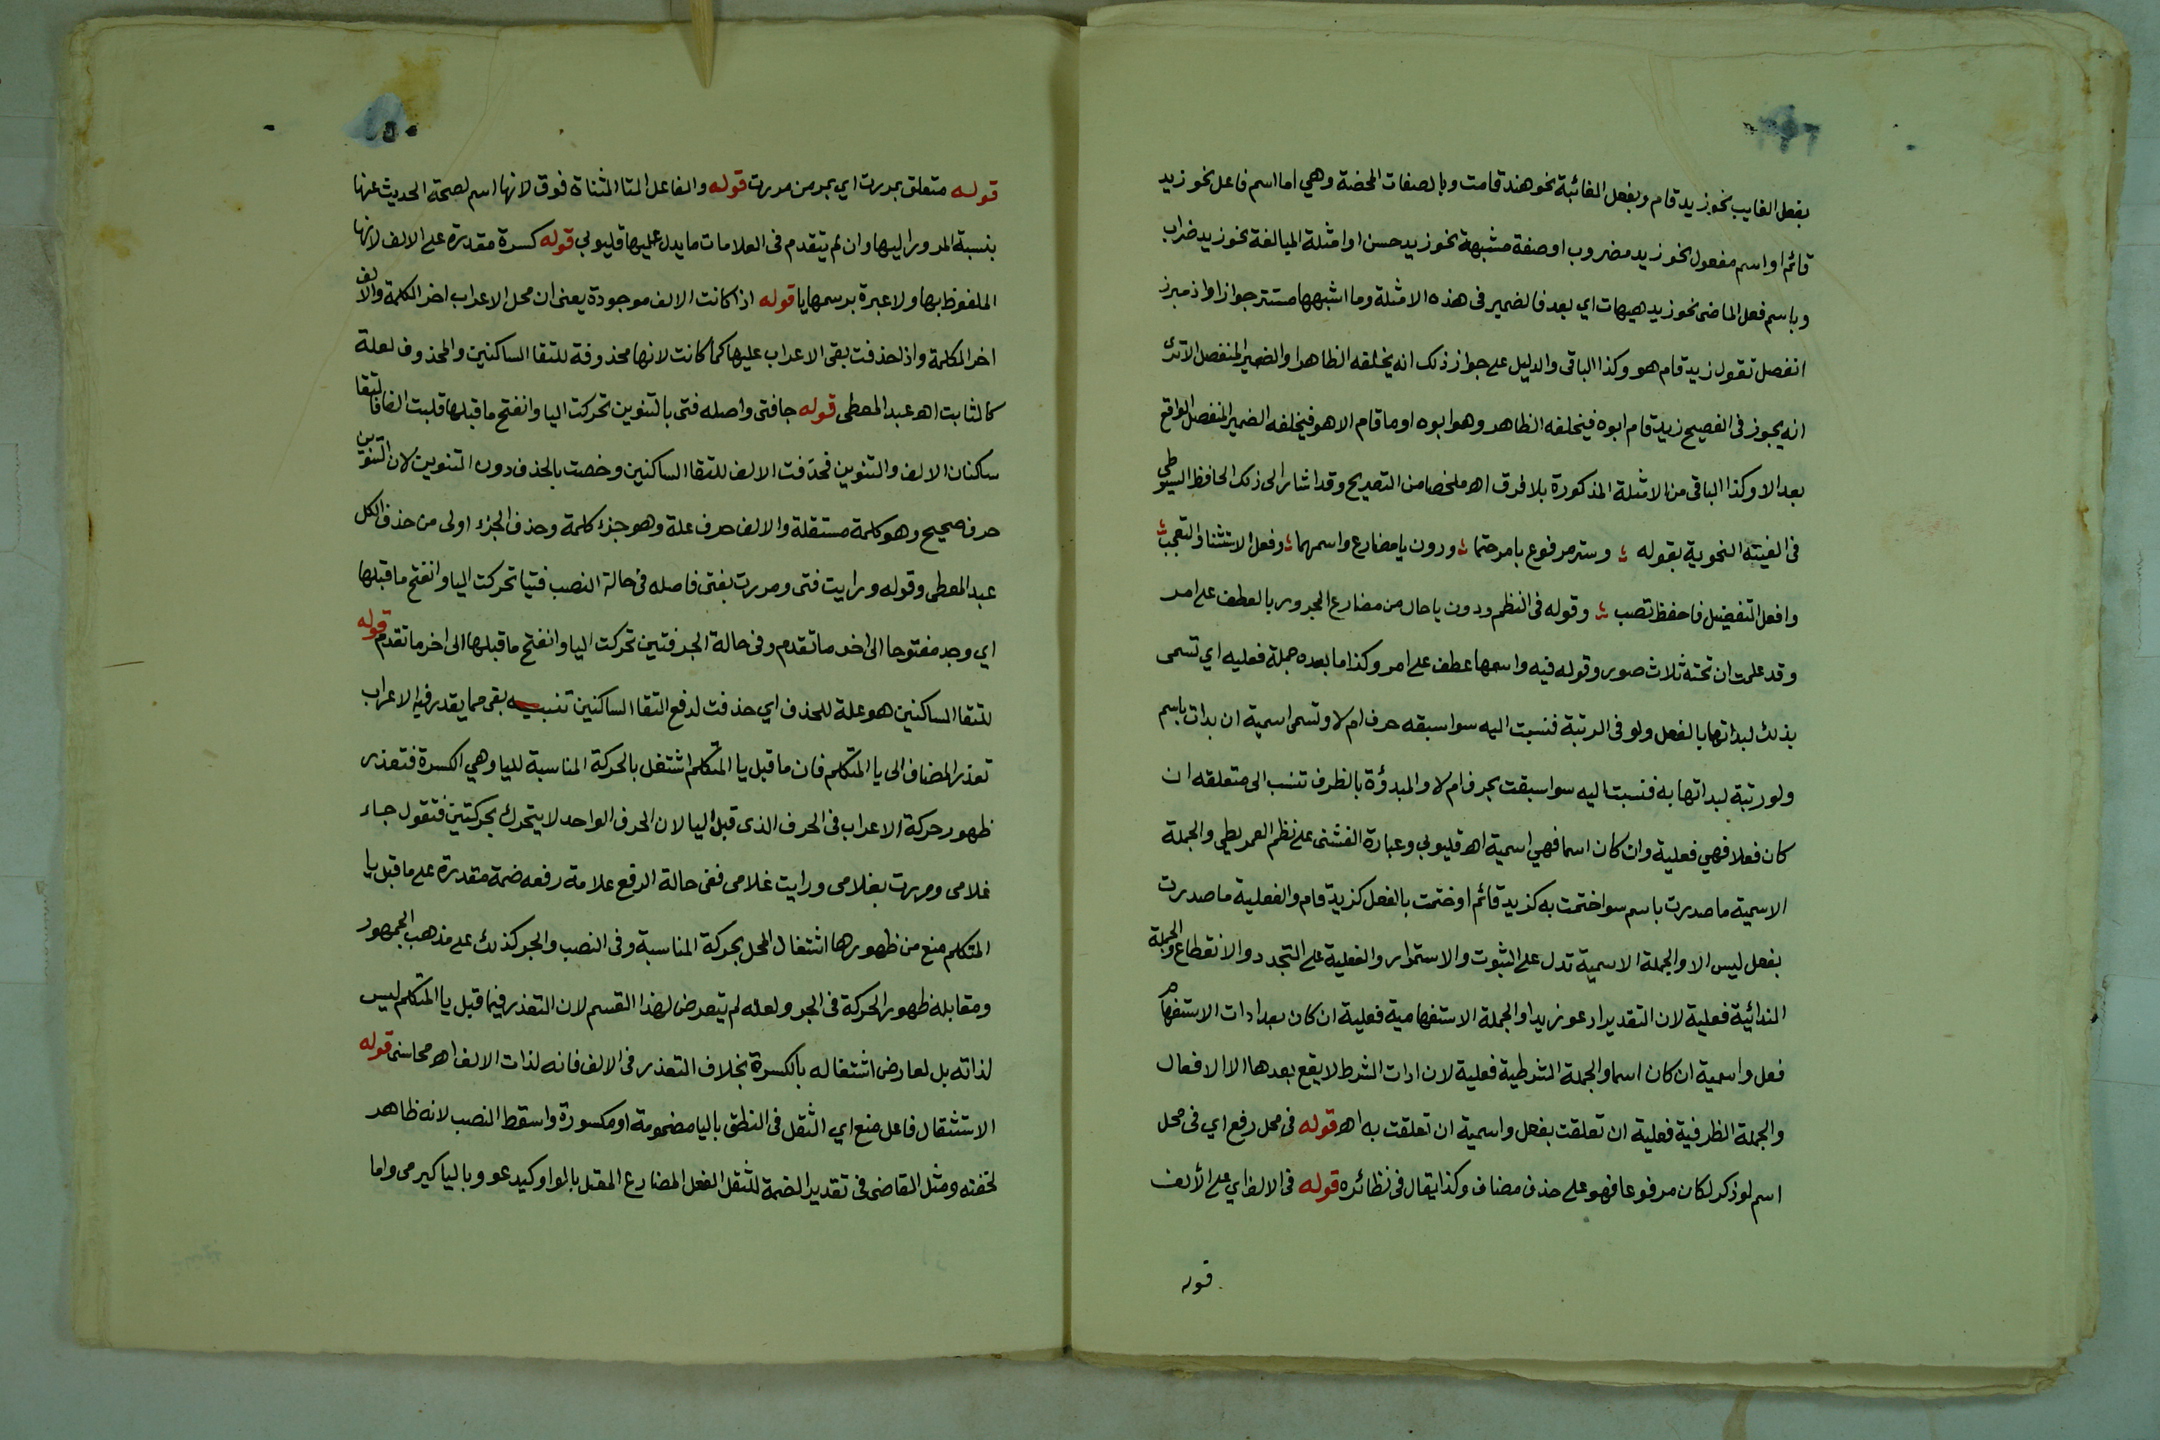 بفعل الغايب نحو زيد قام وبفعل الغائبة نحو هند قامت وبالصفات المحضة وهي اما اسم فاعل نحو زيد
قائم او اسم مفعول نحو زيد مضروب او صفة مشبهة نحو زيد حسن او امثلة المبالغة نحو زيد ضراب
وباسم فعل الماضى نحو زيد هيهات اي بعد فالضمير فى هذه الامثلة وما اشبهها مستتر جوازا واذ مبرز
انفصل تقول زيد قام هو وكذا الباقى والدليل على جواز ذلك انه يخلفه الظاهر او الضمير المنفصل الا ترى
انه يجوز فى الفصيح زيد قام ابوه فيخلفه الظاهر وهو ابوه او ما قام الا هو فيخلفه الضمير المنفصل الواقع
بعد الا وكذا الباقى من الامثلة المذكورة بلا فرق اهـ ملخصا من التصريح وقد اشار الى ذلك الحافظ السيوطى
فى الفيته النحوية بقوله وستر مرفوع بامر حتما ودون يا مضارع واسمهما وفعل الاستثنا والتعجب
وافعل التفضيل فاحفظ تصب وقوله فى النظم ودون يا حال من مضارع المجرور بالعطف على امر
وقد علمت ان تحته ثلاث صور وقوله فيه واسمهما عطف على امر وكذا ما بعده جملة فعليه اي تسمى
بذلك لبداتها بالفعل ولو فى الرتبة فنسبت اليه سوا سبقه حرف ام لا وتسمى اسمية ان بدات باسم
ولو رتبة لبداتها به فنسبت اليه سوا سبقت بحرف ام لا والمبدؤة بالظرف تنسب الى متعلقه ان
كان فعلا فهي فعلية وان كان اسما فهي اسمية اهـ قليوبي وعبارة الفشنى على نظم العمريطي والجملة
الاسمية ما صدرت باسم سوا ختمت به كزيد قائم او ختمت بالفعل كزيد قام والفعلية ما صدرت
بفعل ليس الا والجملة الاسمية تدل على الثبوت والاستمرار والفعلية على التجدد والانقطاع والجملة
الندائية فعلية لان التقدير ادعو زيدا والجملة الاستفهامية فعلية ان كان بعد ادات الاستفهام
فعل واسمية ان كان اسما والجملة الشرطية فعلية لان ادات الشرط لا يقع بعدها الا الافعال
والجملة الظرفية فعلية ان تعلقت بفعل واسمية ان تعلقت به اهـ قوله فى محل رفع اي فى محل
اسم لو ذكر لكان مرفوعا فهو على حذف مضاف وكذا يقال فى نظائره قوله فى الالف اي على الألف
قوله
قوله متعلق بمررت اي بمر من مررت قوله والفاعل التا المثناة فوق لانها اسم لصحة الحديث عنها
بنسبة المرور اليها وان لم يتقدم فى العلامات ما يدل عليها قليوبي قوله كسرة مقدرة على الالف لانها
الملفوظ بها ولا عبرة برسمها يا قوله اذا كانت الالف موجودة يعنى ان محل الاعراب اخر الكلمة والالف
اخر الكلمة واذا حذفت بقى الاعراب عليها كما كانت لانها محذوفة للتقا الساكنين والمحذوف لعلة
كالثابت اهـ عبد المعطى قوله جا فتى واصله فتى بالتنوين تحركت اليا وانفتح ما قبلها قلبت الفا فالتقا
ساكنان الالف والتنوين فحذفت الالف للتقا الساكنين وخصت بالحذف دون التنوين لان التنوين
حرف صحيح وهو كلمة مستقلة والالف حرف علة وهو جزء كلمة وحذف الجزء اولى من حذف الكل
عبد المعطى وقوله ورايت فتى ومررت بفتى فاصله فى حالة النصب فتيا تحركت اليا وانفتح ما قبلها
اي وجد مفتوحا الى اخر ما تقدم وفى حالة الجر فتين تحركت اليا وانفتح ما قبلها الى اخر ما تقدم قوله
للتقا الساكنين هو علة للحذف اي حذفت لدفع التقا الساكنين تنبيه بقى مما يقدر فيه الاعراب
تعذرا المضاف الى يا المتكلم فان ما قبل يا المتكلم اشتغل بالحركة المناسبة لليا وهي الكسرة فتعذر
ظهور حركة الاعراب فى الحرف الذى قبل اليا لان الحرف الواحد لا يتحرك بحركتين فتقول جاء
غلامى ومررت بغلامى ورايت غلامى ففى حالة الرفع علامة رفعه ضمة مقدرة على ما قبل يا
المتكلم منع من ظهورها اشتغال المحل بحركة المناسبة وفى النصب والجر كذلك على مذهب الجمهور
ومقابله ظهور الحركة فى الجر ولعله لم يتعرض لهذا القسم لان التعذر فيما قبل يا المتكلم ليس
لذاته بل لعارض اشتغاله بالكسرة بخلاف التعذر فى الالف فانه لذات الالف اهـ محاسنى قوله
الاستثقال فاعل منع اي الثقل فى النطق باليا مضمومة او مكسورة واسقط النصب لانه ظاهر
لخفته ومثل القاضى فى تقدير الضمة للثقل الفعل المضارع المعتل بالواو كيدعو وباليا كيرمى واما